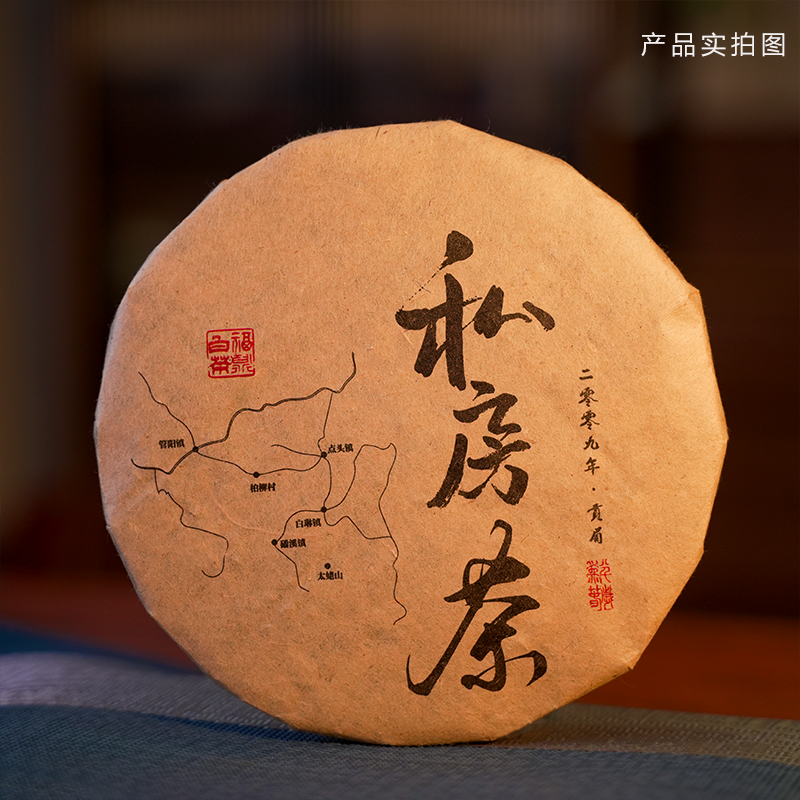 产品实拍图
私房茶
二零零九年·贡眉
福鼎
白茶
管阳镇
点头镇
柏柳村
白琳镇
磻溪镇
太姥山